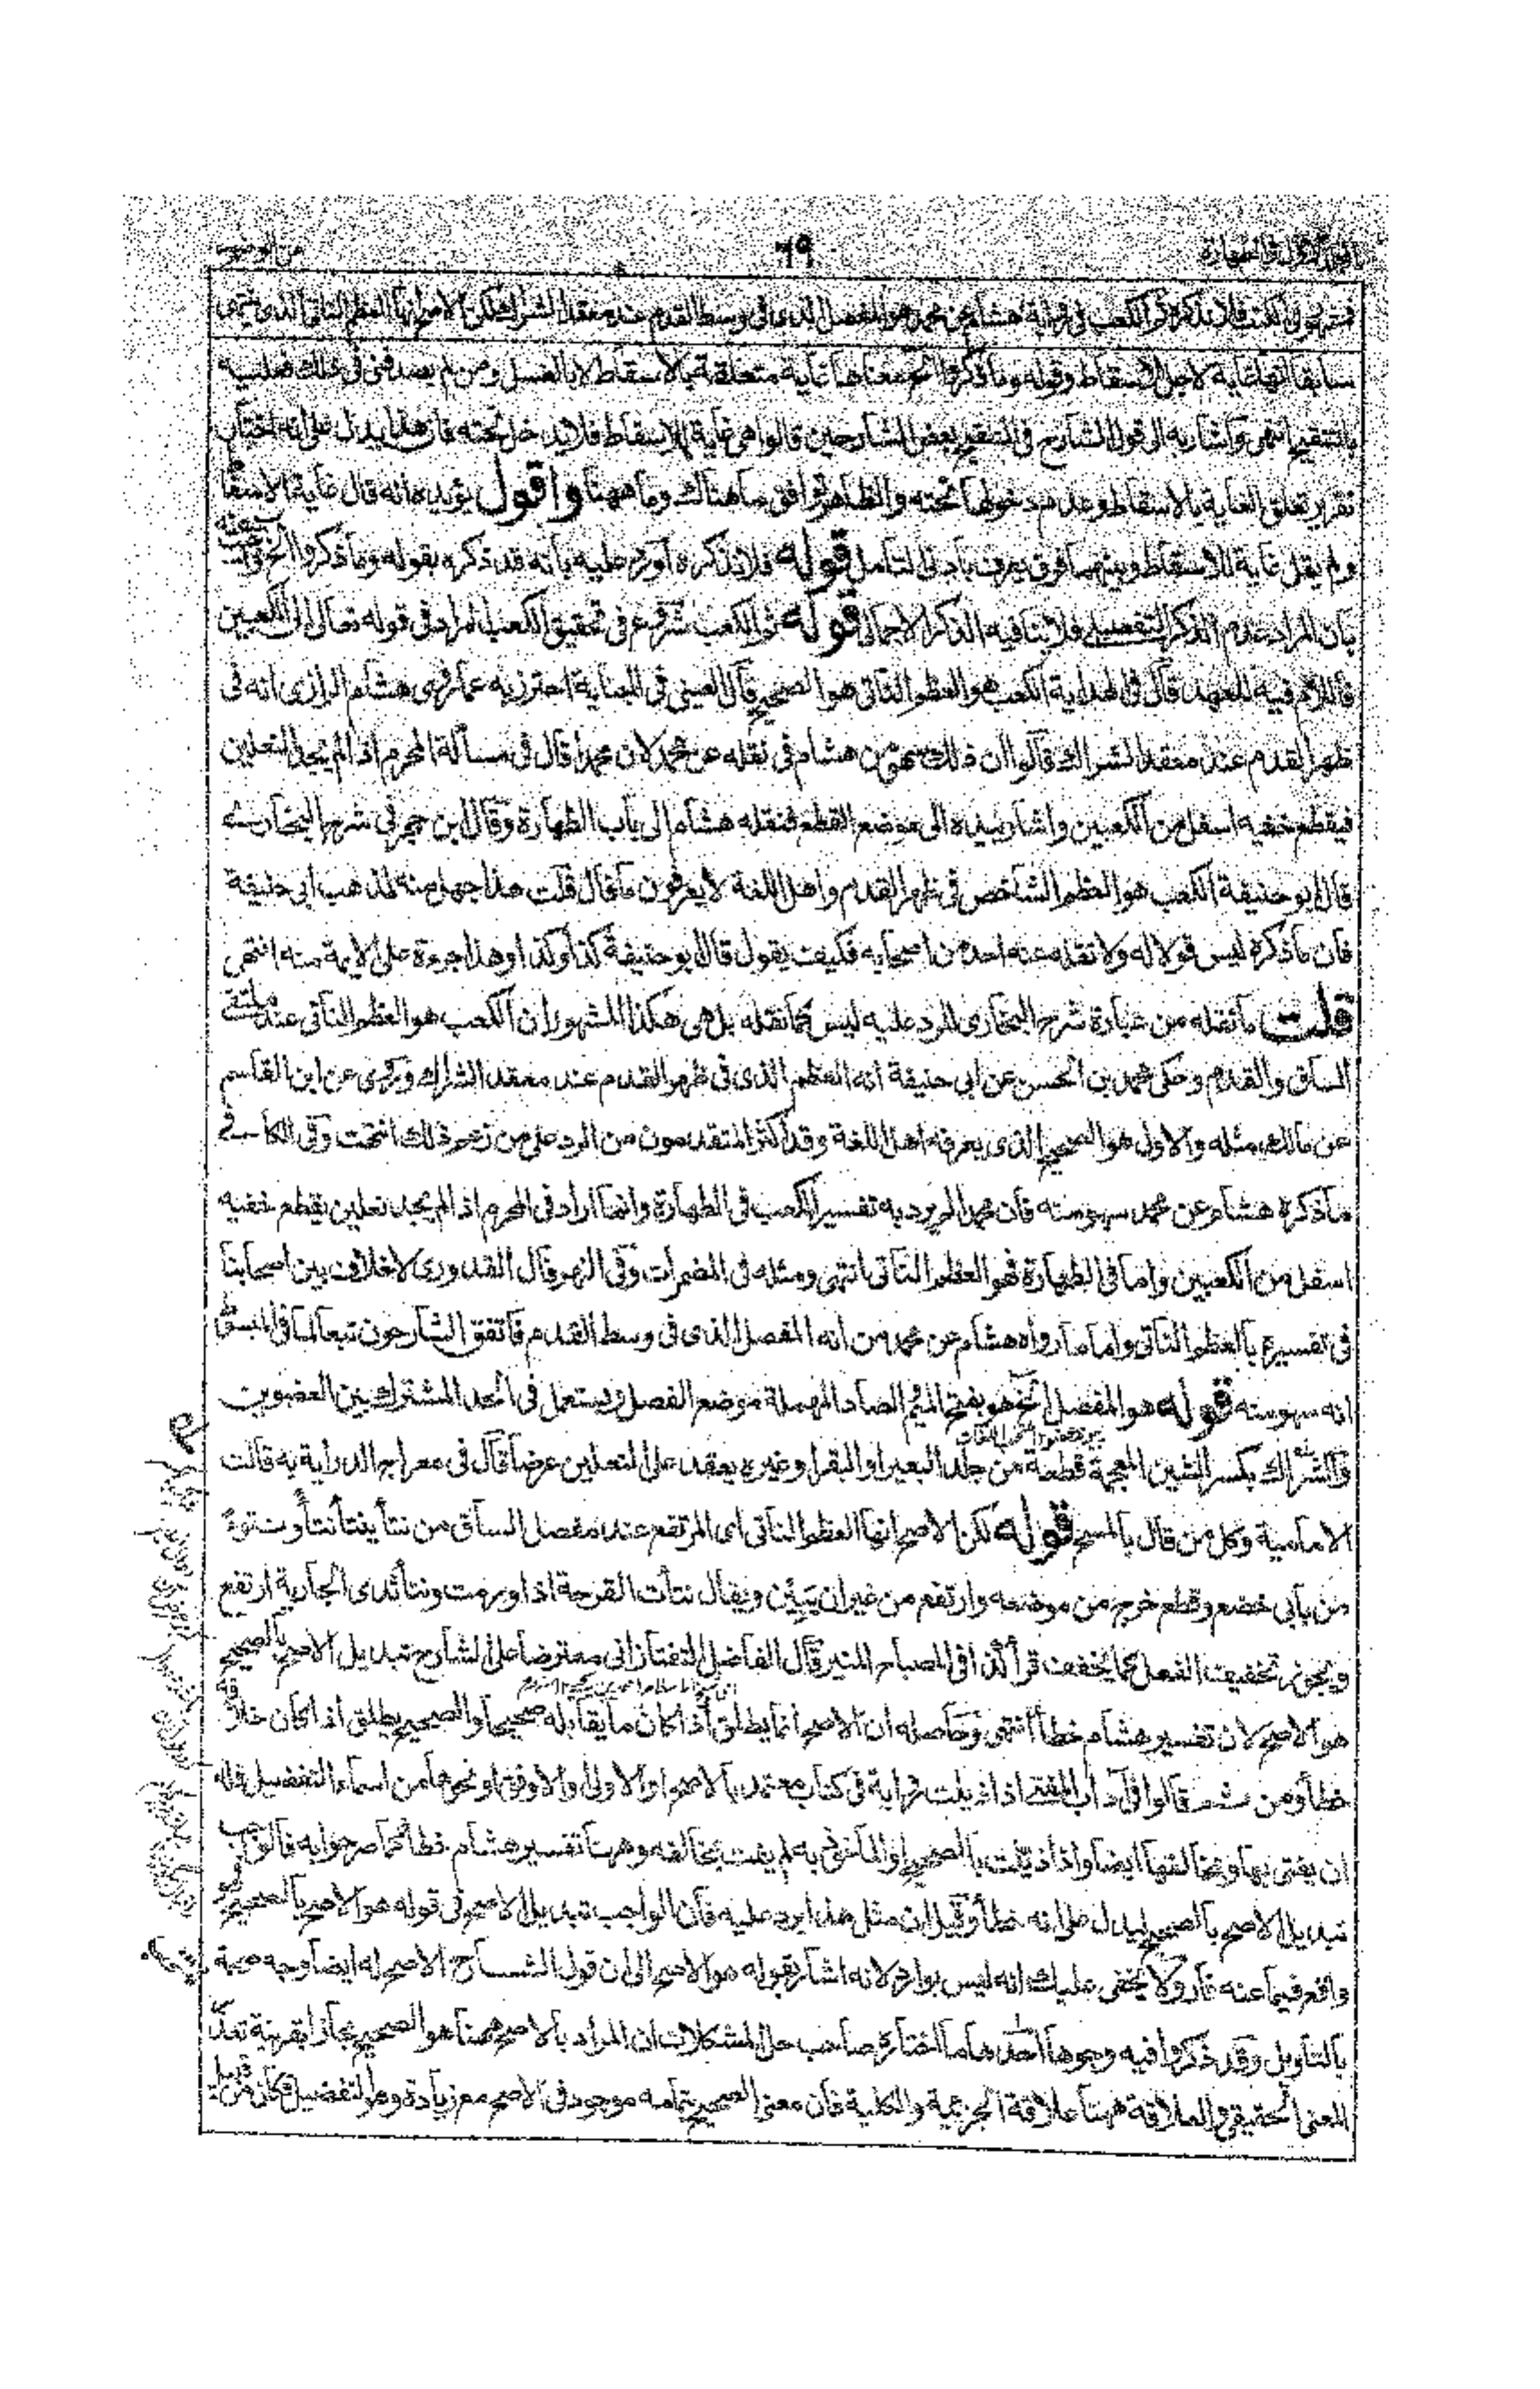 ٦٩
ثم الكعب في رواية هشام عن محمد هو المفصل الذي في وسط القدم عند معقد الشراك لكن الاصح انها العظم الناتي الذي ينتهي
سابقا انها غاية لاجل الاسقاط وقوله وما ذكروا الخ معناها غاية متعلقة بالاسقاط لا بالغسل ومن لم يصدقني في ذلك فعليه
بالتنقيح انتهى واشار به الى قول الشارح في التنقيح بعض الشارحين قالوا هي غاية الاسقاط فلا تدخل تحته فان هذا يدل على انه اختار
تقرير تعلق الغاية بالاسقاط وعدم دخولها تحته والظاهر توافق ما هناك وما ههنا واقول يؤيده انه قال غاية الاسقا
ولم يقل غاية للاسقاط وبينهما فرق يعرف بادنى التأمل قوله فلا نذكره اورد عليه بانه قد ذكره بقوله وما ذكروا الخ
بان المراد عدم الذكر التفصيلي ولا ينافيه الذكر الاجمالي قوله ثم الكعب شروع في تحقيق الكعب المراد في قوله تعالى الى الكعبين
فاللام فيه للعهد قال في الهداية الكعب هو العظم الناتي هو الصحيح قال العيني في البناية احترز به عما روى هشام الرازي انه في
ظهر القدم عند معقد الشراك قالوا ان ذلك سهو من هشام في نقله عن محمد لان محمدا قال في مسألة المحرم اذا لم يجد النعلين
فيقطع خفيه اسفل من الكعبين واشار بيده الى موضع القطع فنقله هشام الى باب الطهارة وقال ابن حجر في شرح البخاري
قال ابو حنيفة الكعب هو العظم الشاخص في ظهر القدم واهل اللغة لا يعرفون ما قال قلت هذا جهل منه لمذهب ابي حنيفة
فان ما ذكره ليس قولا له ولا نقله عنه احد من اصحابه فكيف يقول قال ابو حنيفة كذا وكذا وهذا جرءة على الايمة منه انتهى
قلت ما نقله من عبارة شرح البخاري للرد عليه ليس كما نقله بل هي هكذا المشهور ان الكعب هو العظم الناتي عند ملتقى
الساق والقدم وحكى محمد بن الحسن عن ابي حنيفة انه العظم الذي في ظهر القدم عند معقد الشراك وروى عن ابن القاسم
عن مالك مثله والاول هو الصحيح الذي يعرفه اهل اللغة وقد اكثر المتقدمون من الرد على من زعم ذلك انتهت وفي الكافي
ما ذكره هشام عن محمد سهو منه فان محمدا لم يرد به تفسير الكعب في الطهارة وانما اراد في المحرم اذا لم يجد نعلين يقطع خفيه
اسفل من الكعبين واما في الطهارة فهو العظم الناتي انتهى ومثله في المضمرات وفي النهر قال القدوري لا خلاف بين اصحابنا
في تفسيره بالعظم الناتي واما ما رواه هشام عن محمد من انه المفصل الذي في وسط القدم فاتفق الشارحون تبعا لما في المبسوط
انه سهو منه قوله هو المفصل الخ هو بفتح الميم الصاد المهملة موضع الفصل ويستعمل في الحد المشترك بين العضوين
والشراك بكسر الشين المعجمة قطعة من جلد البعير او البقر او غيره يعقد على النعلين عرضا قال في معراج الدراية به قالت
الامامية وكل من قال بالمسح قوله لكن الاصح انها العظم الناتي اى المرتفع عند مفصل الساق من نتأ ينتأ نتأ ونتوء
من بابي خضع وقطع خرج من موضعه وارتفع من غير ان يبين ويقال نتأت القرحة اذا ورمت ونتأ ثدى الجارية ارتفع
ويجوز تخفيف الفعل كما يخفف قرأ كذا في المصباح المنير قال الفاضل التفتازاني معترضا على الشارح تبديل الاصح بالصحيح
هو الاصح لان تفسير هشام خطأ انتهى وحاصله ان الاصح انما يطلق اذا كان ما يقابله صحيحا والصحيح يطلق اذا كان خلافه
خطأ ومن ثم قالوا في آداب المفتي اذا ذيلت رواية في كتاب معتمد بالاصح او الاولى والاوفق او نحوها من اسماء التفضيل فله
ان يفتي بها وبمخالفتها ايضا واذا ذيلت بالصحيح او المأخوذ به لم يفت بمخالفه وههنا تفسير هشام خطأ كما صرحوا به فالواجب
تبديل الاصح بالصحيح ليدل على انه خطأ وقيل ان مثل هذا يرد عليه فان الواجب تبديل الاصح في قوله هو الاصح بالصحيح فهو
واقع فيما عنه فار ولا يخفى عليك انه ليس بوارد لانه اشار بقوله هو الاصح الى ان قول الشارح الاصح له ايضا وجه صحة
بالتأويل وقد ذكروا فيه وجوها احدها ما اختاره صاحب حل المشكلات ان المراد بالاصح ههنا هو الصحيح مجازا بقرينة تعذر
المعنى الحقيقي والعلاقة ههنا علاقة الجزئية والكلية فان معنى الصحيح بتمامه موجود في الاصح مع زيادة وهو التفضيل فكان من